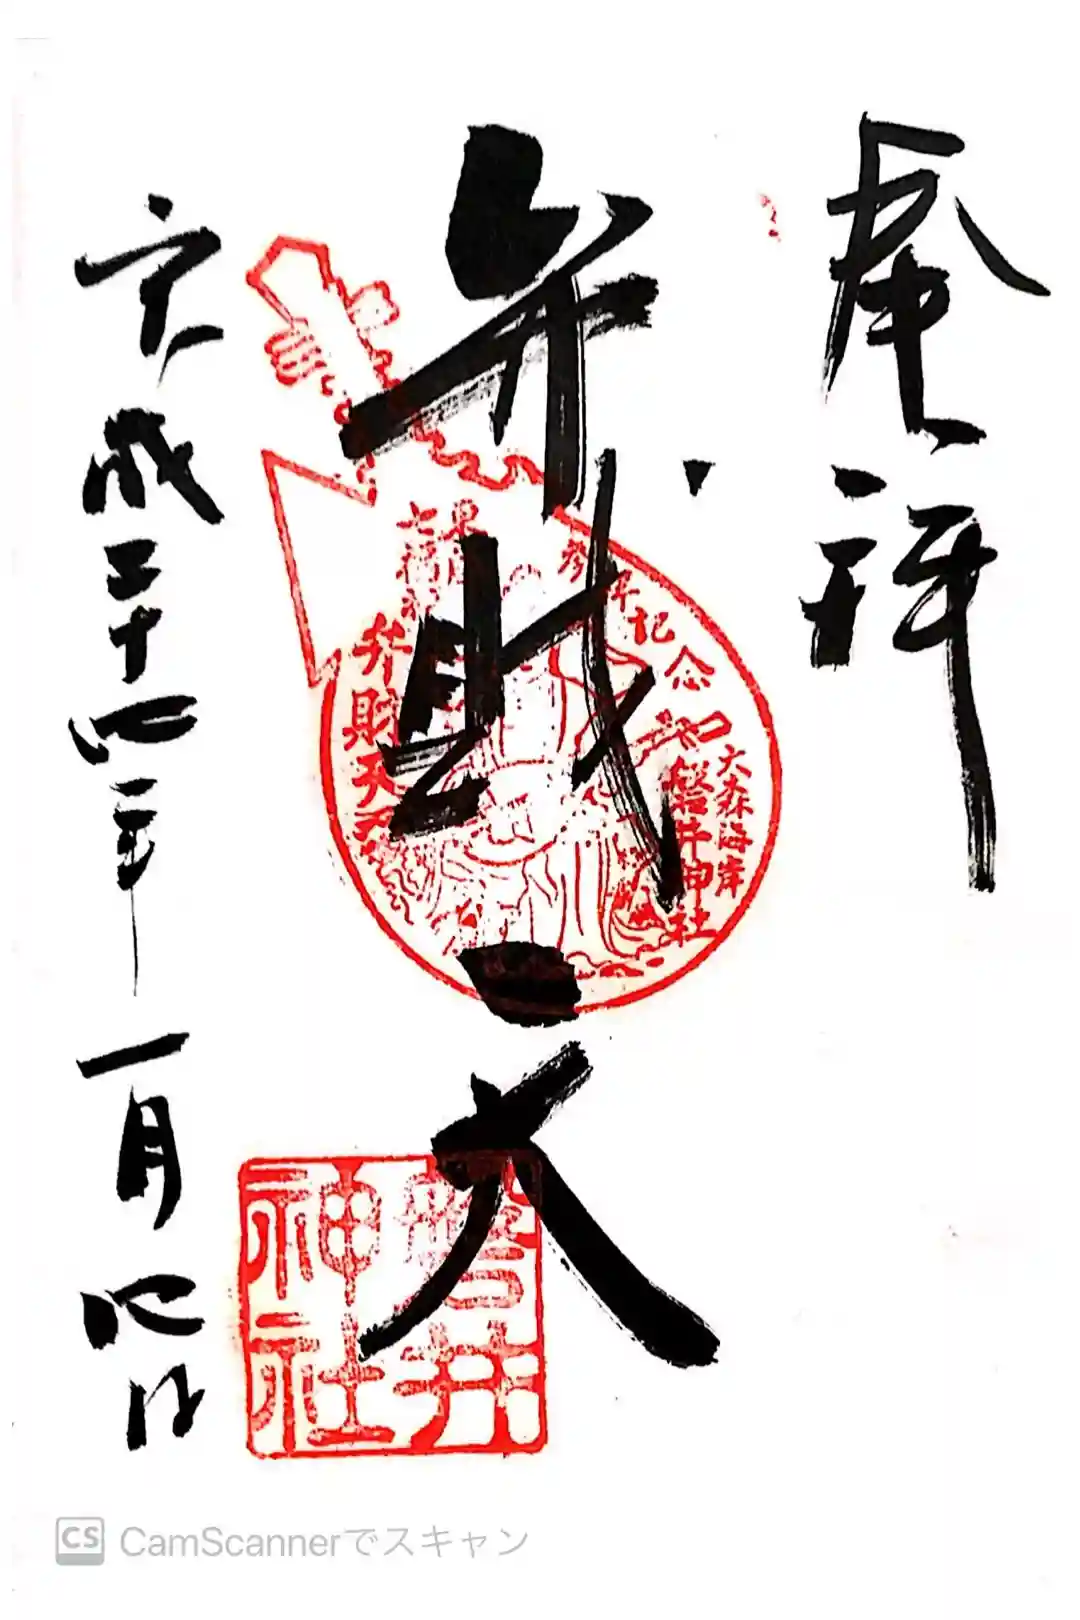 奉拝
弁財天
平成二十四年一月四日
参拝記念
大森海岸
磐井神社
東海
七福神
弁財天
磐井
神社
CS CamScannerでスキャン